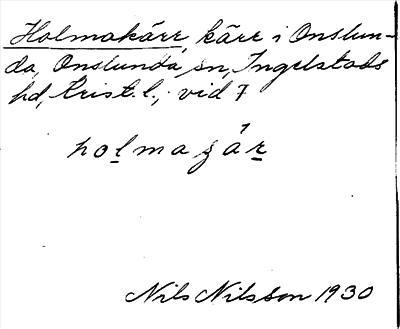 Holmakärr, kärr i Onslun-
da, Onslunda sn, Ingelstads
hd, Krist. l., vid 7
holmagár
Nils Nilsson 1930